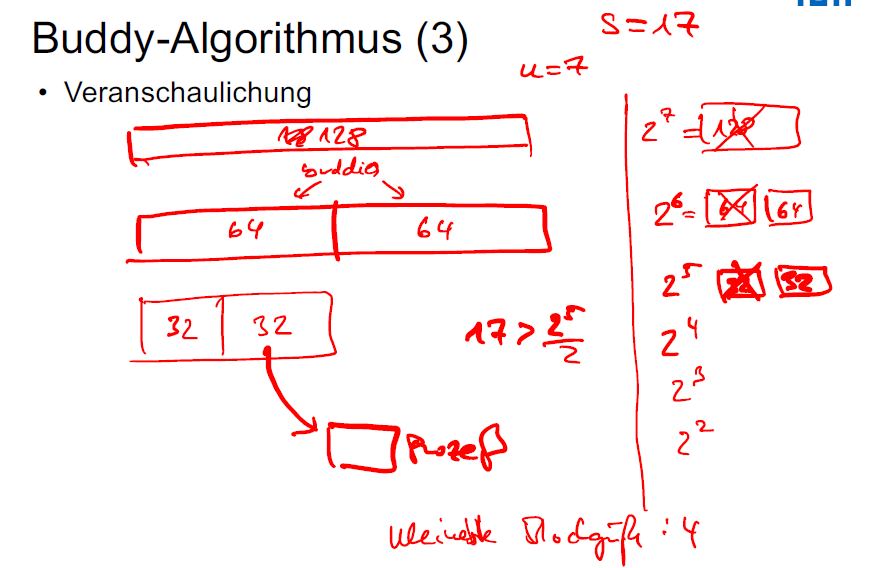 Buddy-Algorithmus (3)
S=17
u=7
• Veranschaulichung
128
buddies
64 64
32 32
17 > 2⁵/2
Prozeß
2⁷ = 128
2⁶ = 64 64
2⁵ 32 32
2⁴
2³
2²
kleinste Blockgröße : 4